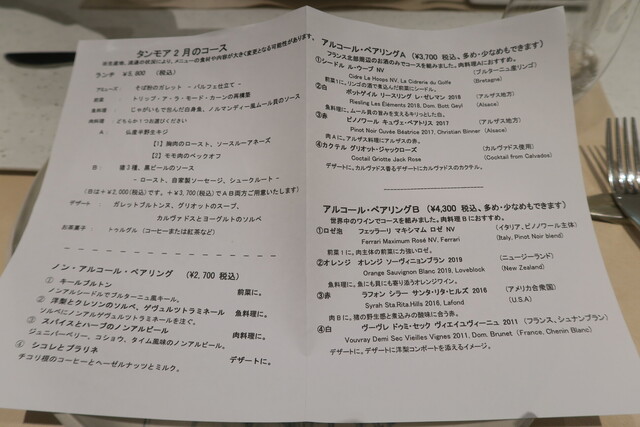 タンモア2月のコース
ランチ ¥5,800 (税込)
アミューズ: そば粉のガレット - バルフェ仕立て -
前菜: トリップ・ア・ラ・モード・カーンの再構築
魚料理: じゃがいもで包んだ白身魚、ノルマンディー風ムール貝のソース
肉料理: どちらか1つお選びください
A: 仏産*野生キジ
【1】胸肉のロースト、ソースルーアネーズ
【2】モモ肉のベックオフ
B: 猪3種、黒ビールのソース
- ロースト、自家製ソーセージ、シュークルート -
(Bは+¥2,000(税込)です。+¥3,700(税込)でAB両方ご用意いたします)
デザート: ガレットブルトンヌ、グリオットのスープ、
カルヴァドスとヨーグルトのソルベ
お茶菓子: トゥルグル (コーヒーまたは紅茶など)
ノン・アルコール・ペアリング (¥2,700 税込)
① キールブルトン 前菜に。
ノンアルシードルでブルターニュ風キール。
② 洋梨とクレソンのソルベ、ゲヴュルツトラミネール 魚料理に。
ソルベにノンアルゲヴュルツトラミネールを注ぐ。
③ スパイスとハーブのノンアルビール 肉料理に。
ジュニパーベリー、コショウ、タイム風味のノンアルビール。
④ シコレとプラリネ デザートに。
チコリ根のコーヒーとヘーゼルナッツとミルク。
アルコール・ペアリングA (¥3,700 税込、多め・少なめもできます)
フランス北部周辺のお酒のみでコースを組みました。肉料理Aにおすすめ。
①シードル ル・ウープ NV (ブルターニュ産リンゴ)
Cidre La Hoops NV, La Cidrerie du Golfe (Bretagne)
前菜1に。リンゴの酒で煮込んだ前菜にシードル。
②白 ボットゲイル リースリング レ・ゼレマン 2018 (アルザス地方)
Riesling Les Éléments 2018, Dom. Bott Geyl (Alsace)
魚料理に。ムール貝の旨みを支えるキリっとした白。
③赤 ピノノワール キュヴェ・ベアトリス 2017 (アルザス地方)
Pinot Noir Cuvée Béatrice 2017, Christian Binner (Alsace)
肉Aに。アルザス料理にアルザスの赤。
④カクテル グリオット・ジャックローズ (カルヴァドス使用)
Coctail Griotte Jack Rose (Cocktail from Calvados)
デザートに。カルヴァドス香るデザートにカルヴァドスのカクテル。
アルコール・ペアリングB (¥4,300 税込、多め・少なめもできます)
世界中のワインでコースを組みました。肉料理Bにおすすめ。
①ロゼ泡 フェッラーリ マキシマム ロゼ NV (イタリア、ピノノワール主体)
Ferrari Maximum Rosé NV, Ferrari (Italy, Pinot Noir blend)
前菜1に。肉主体の前菜に力強いロゼ。
②オレンジ オレンジ ソーヴィニョンブラン 2019 (ニュージーランド)
Orange Sauvignon Blanc 2019, Loveblock (New Zealand)
魚料理に。魚にも貝にも寄り添うオレンジワイン。
③赤 ラフォン シラー サンタ・リタ・ヒルズ 2016 (アメリカ合衆国)
Syrah Sta.Rita.Hills 2016, Lafond (U.S.A)
肉Bに。猪の野生感と煮込みの酸味に合う赤。
④白 ヴーヴレ ドゥミ・セック ヴィエイユヴィーニュ 2011 (フランス、シュナンブラン)
Vouvray Demi Sec Vieilles Vignes 2011, Dom. Brunet (France, Chenin Blanc)
デザートに。デザートに洋梨コンポートを添えるイメージ。